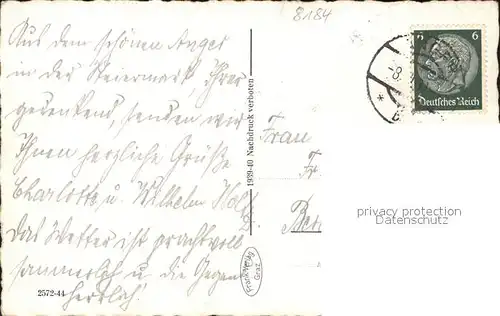 8184
Aus dem schönen Anger
in der Steiermark, Ihrer
gedenkend, senden wir
Ihnen herzliche Grüße
Charlotte u. Wilhelm
das Wetter ist prachtvoll
sommerlich u. die Gegend
herrlich!
2572-44
1939-40 Nachdruck verboten
Frank-Verlag
Graz
6 6
Deutsches Reich
8.
Frau
Fr
Ber
privacy protection
Datenschutz